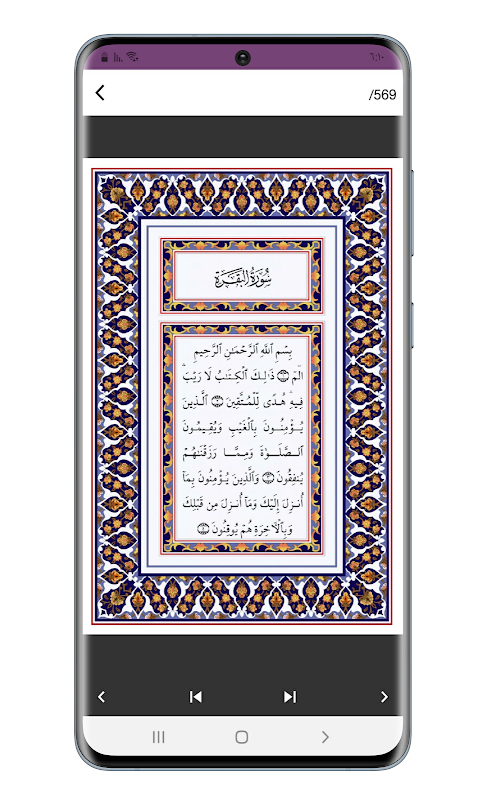 ٦:١٠
/569
سُورَةُ البَقَرَة
بِسْمِ ٱللَّهِ ٱلرَّحْمَٰنِ ٱلرَّحِيمِ
الٓمٓ ۝ ذَٰلِكَ ٱلْكِتَٰبُ لَا رَيْبَ ۛ
فِيهِ ۛ هُدًى لِّلْمُتَّقِينَ ۝ ٱلَّذِينَ
يُؤْمِنُونَ بِٱلْغَيْبِ وَيُقِيمُونَ
ٱلصَّلَوٰةَ وَمِمَّا رَزَقْنَٰهُمْ
يُنفِقُونَ ۝ وَٱلَّذِينَ يُؤْمِنُونَ بِمَآ
أُنزِلَ إِلَيْكَ وَمَآ أُنزِلَ مِن قَبْلِكَ
وَبِٱلْءَاخِرَةِ هُمْ يُوقِنُونَ ۝